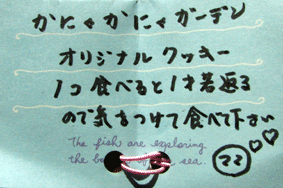 かにゃかにゃガーデン
オリジナルクッキー
1コ食べると1才若返る
ので気をつけて食べて下さい
The fish are exploring
the b of sea.